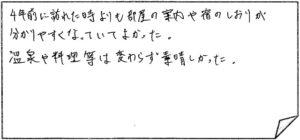 4年前に訪れた時よりも部屋の案内や宿のしおりが
分かりやすくなっていてよかった。
温泉や料理等は変わらず素晴しかった。